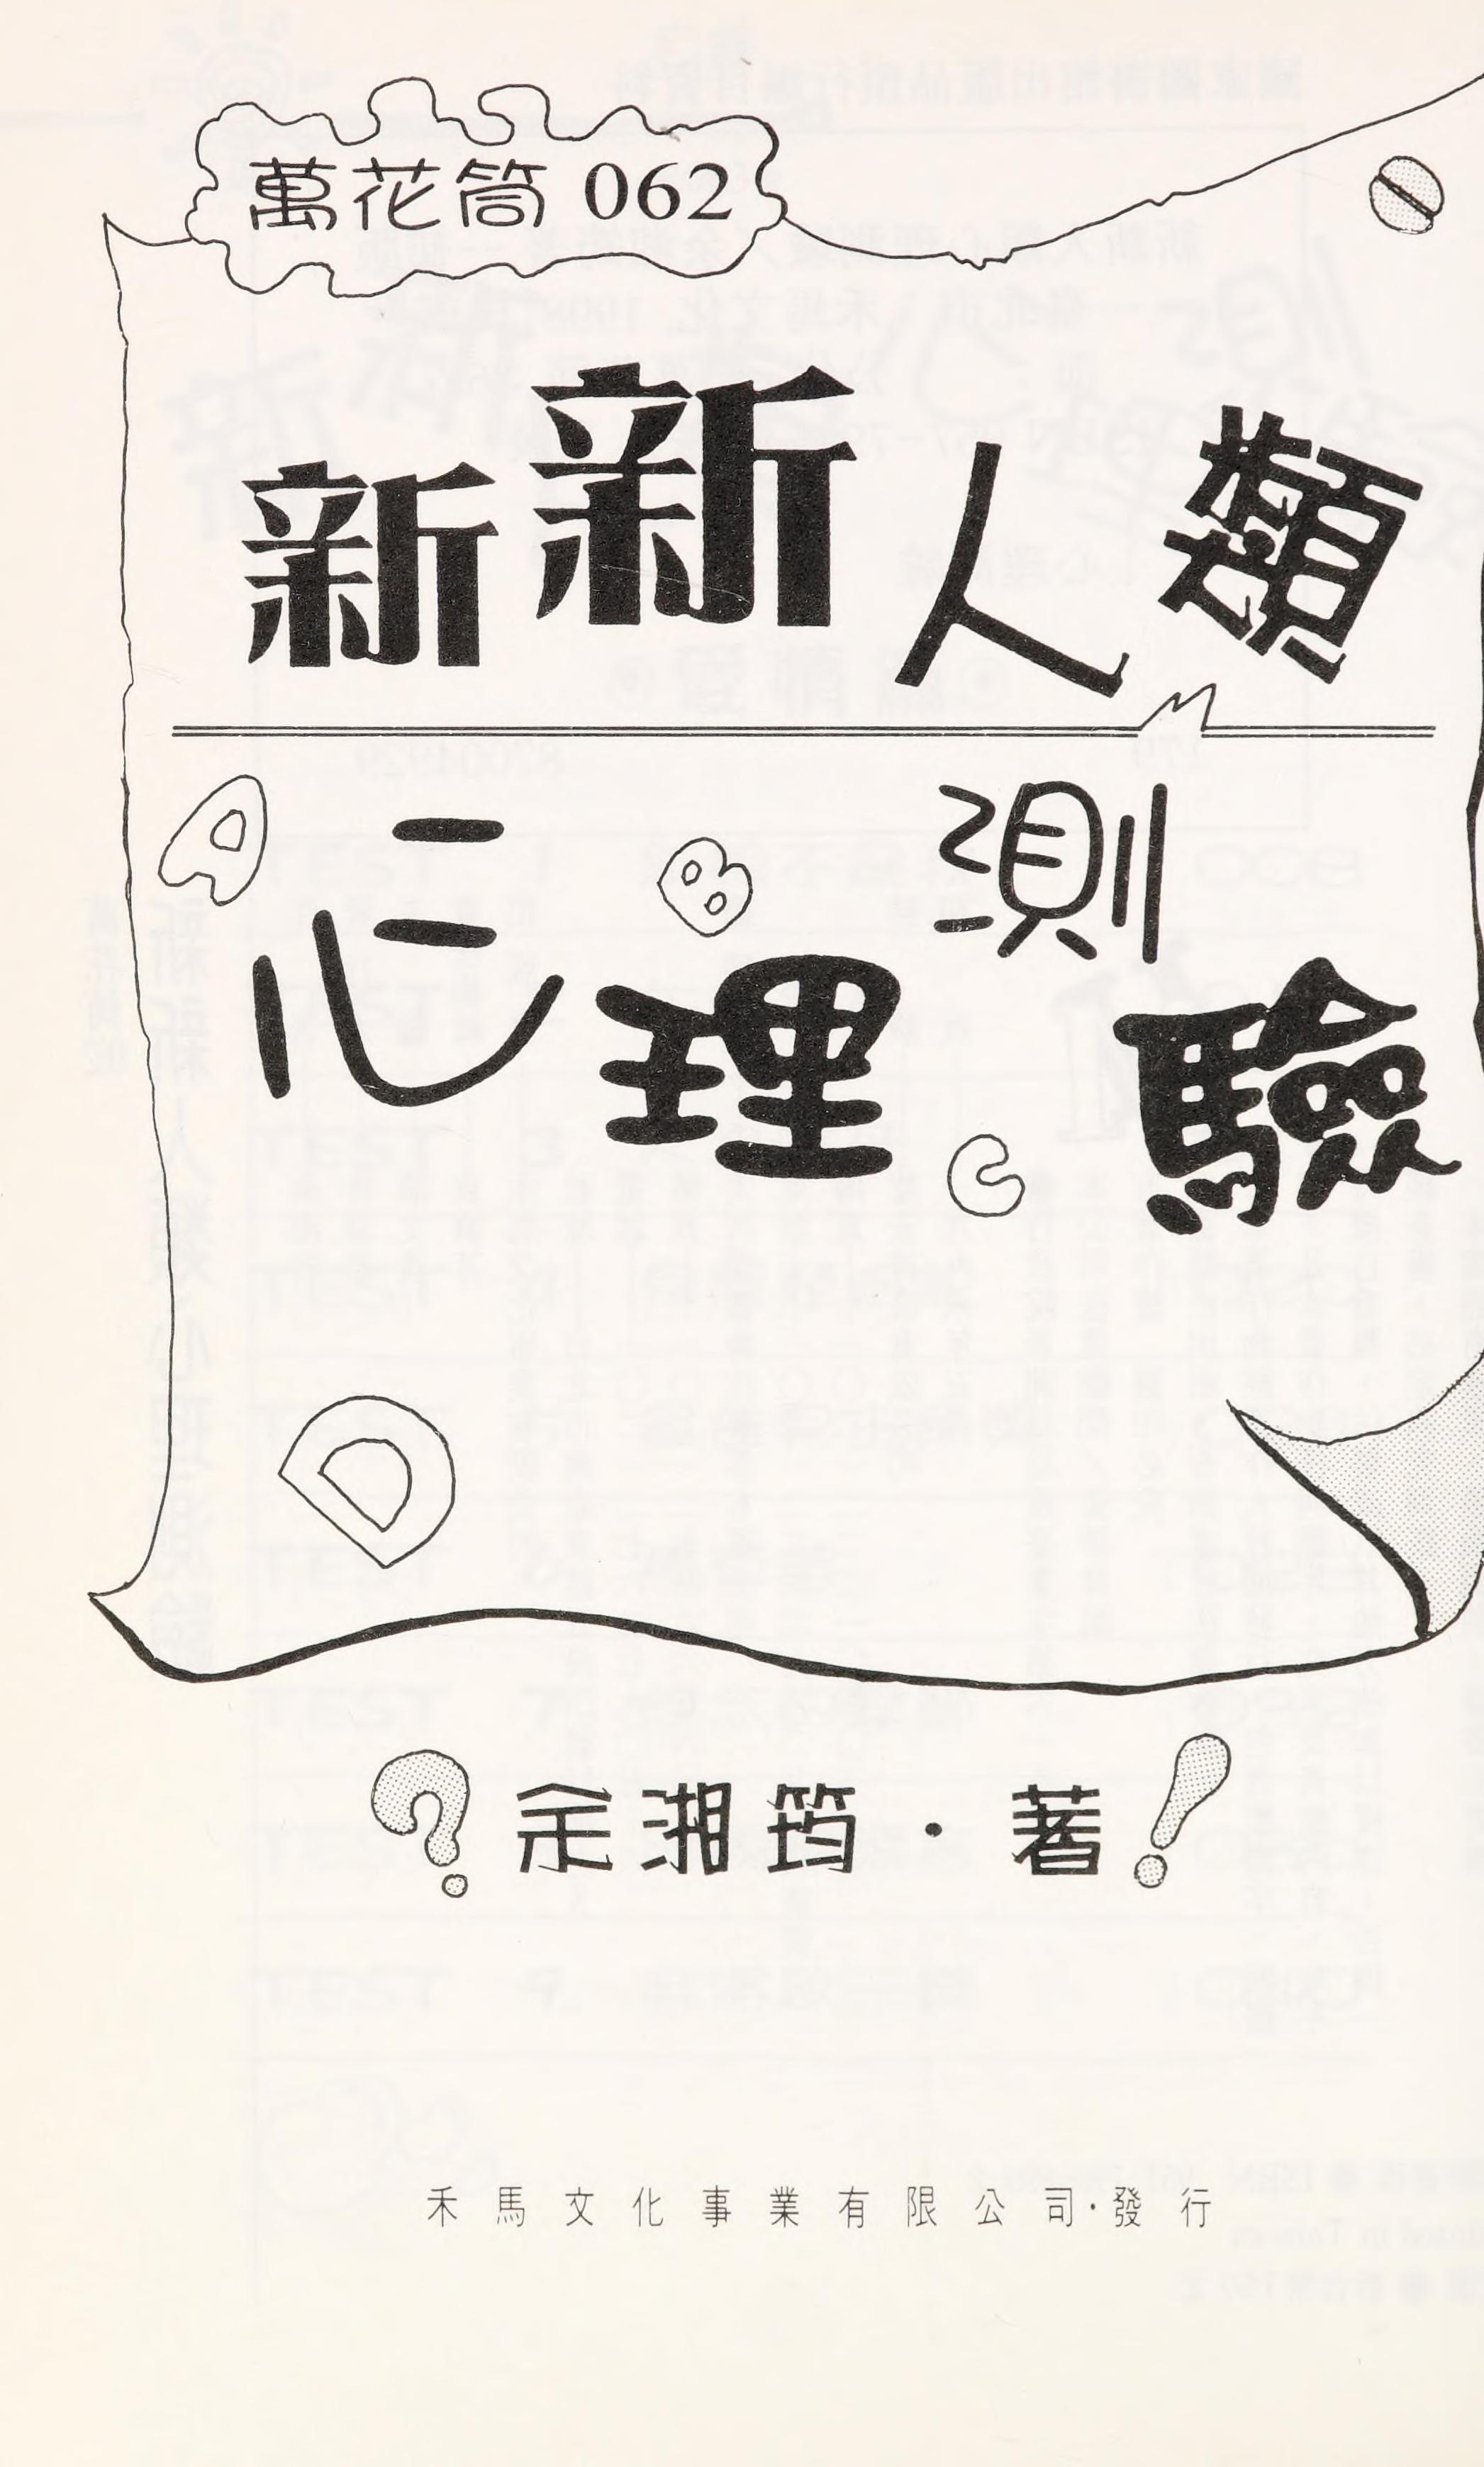 萬花筒 062
新新人類
心理測驗
A B C D
余湘筠・著
禾馬文化事業有限公司・發行